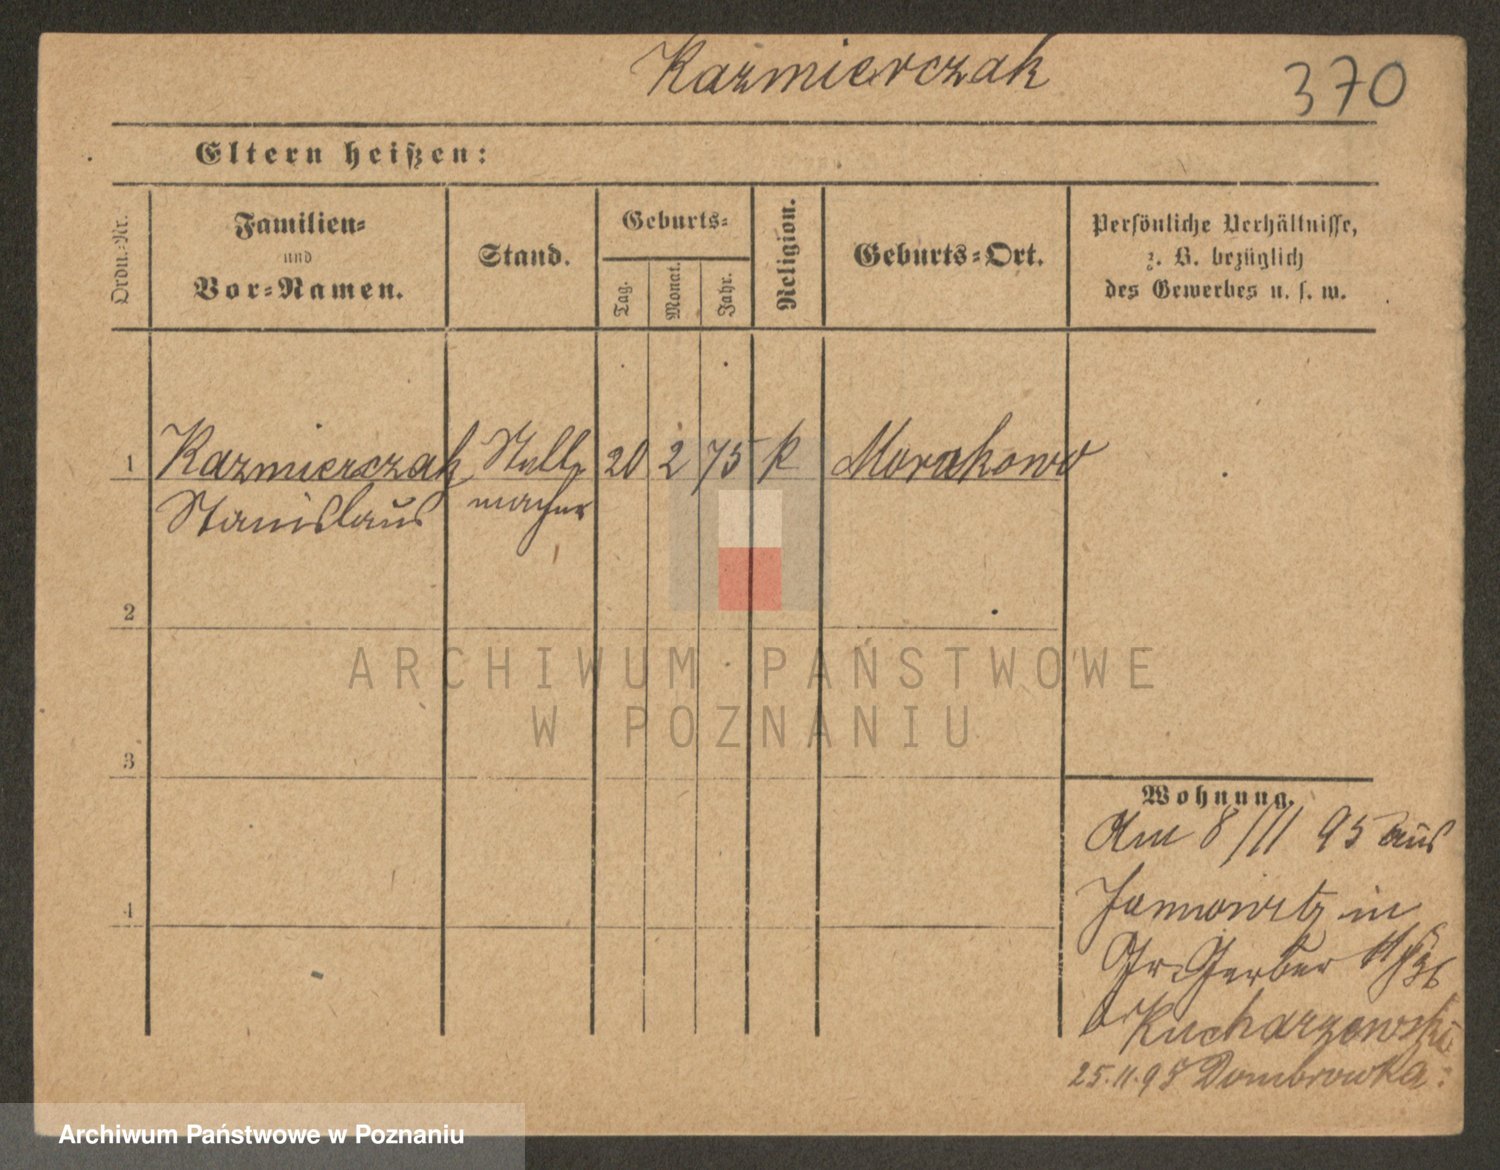 Kazmierczak
370
Eltern heißen:
Ordn.-Nr.
Familien-
und
Vor-Namen.
Stand.
Geburts-
Tag.
Monat.
Jahr.
Religion.
Geburts-Ort.
Persönliche Verhältnisse,
z. B. bezüglich
des Gewerbes u. s. w.
1
Kazmierczak
Stanislaus
Stell
macher
20
2
75
k
Morakowo
2
3
4
ARCHIWUM PAŃSTWOWE
W POZNANIU
Wohnung.
Am 8/11 95 aus
Jannowitz in
Gr. Gerber
Kucharzewski
25.11.95 Dombrowka.
Archiwum Państwowe w Poznaniu